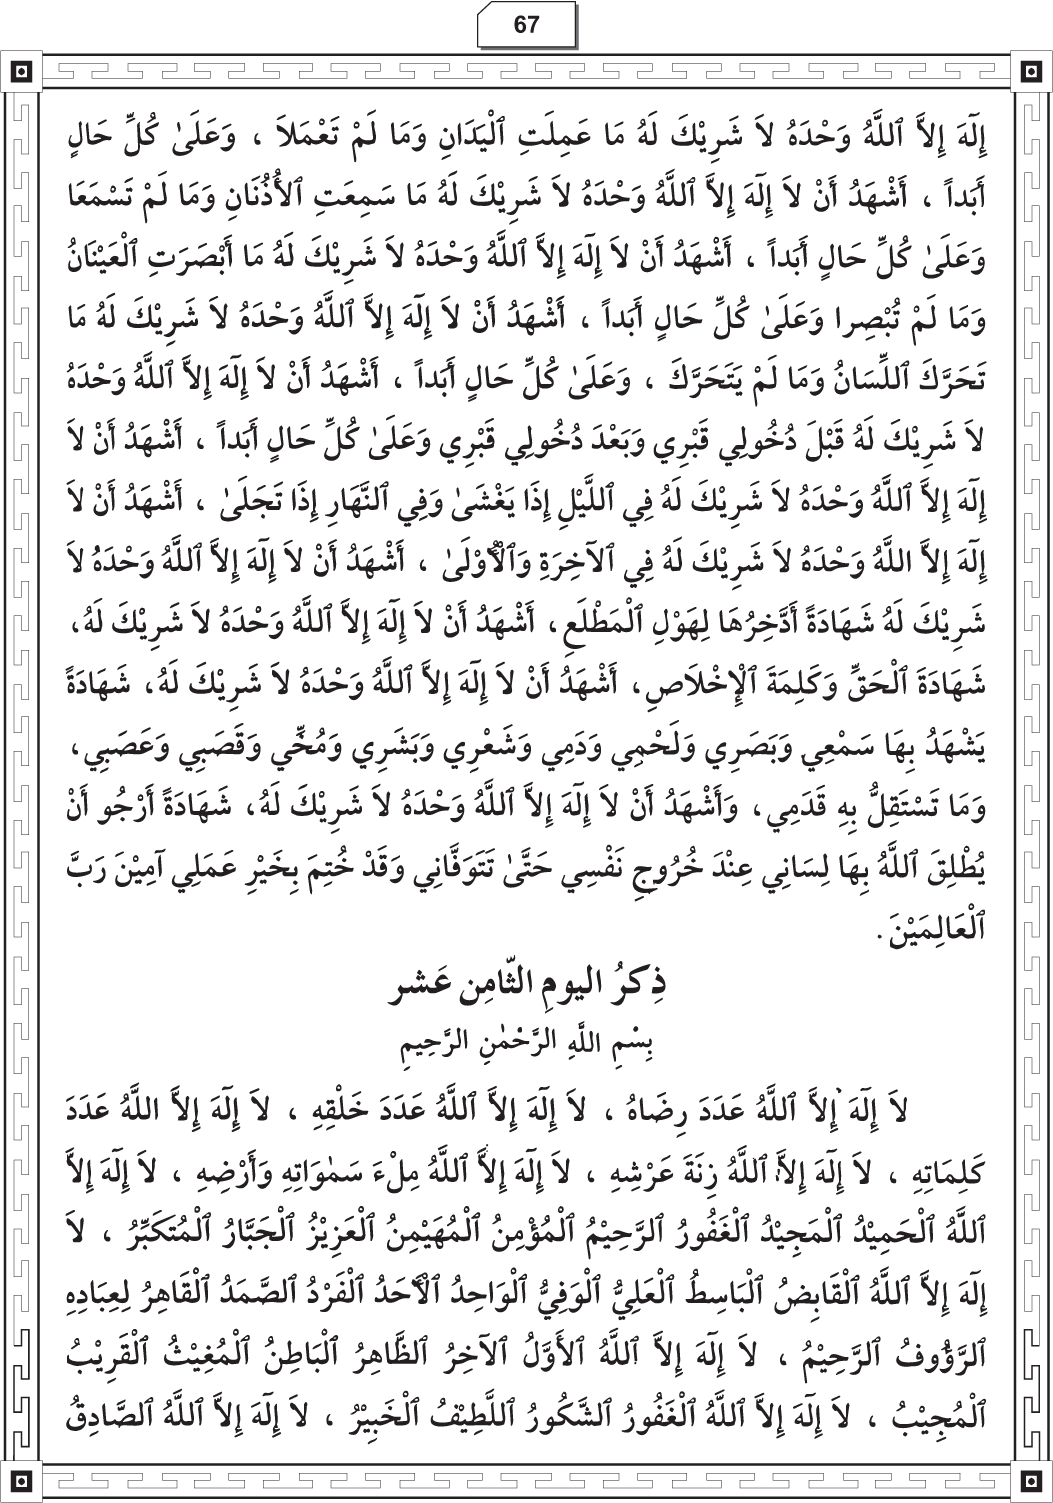 67
إِلٰهَ إِلاَّ ٱللَّهُ وَحْدَهُ لاَ شَرِيْكَ لَهُ مَا عَمِلَتِ ٱلْيَدَانِ وَمَا لَمْ تَعْمَلاَ ، وَعَلَىٰ كُلِّ حَالٍ
أَبَداً ، أَشْهَدُ أَنْ لاَ إِلٰهَ إِلاَّ ٱللَّهُ وَحْدَهُ لاَ شَرِيْكَ لَهُ مَا سَمِعَتِ ٱلأُذُنَانِ وَمَا لَمْ تَسْمَعَا
وَعَلَىٰ كُلِّ حَالٍ أَبَداً ، أَشْهَدُ أَنْ لاَ إِلٰهَ إِلاَّ ٱللَّهُ وَحْدَهُ لاَ شَرِيْكَ لَهُ مَا أَبْصَرَتِ ٱلْعَيْنَانُ
وَمَا لَمْ تُبْصِرا وَعَلَىٰ كُلِّ حَالٍ أَبَداً ، أَشْهَدُ أَنْ لاَ إِلٰهَ إِلاَّ ٱللَّهُ وَحْدَهُ لاَ شَرِيْكَ لَهُ مَا
تَحَرَّكَ ٱللِّسَانُ وَمَا لَمْ يَتَحَرَّكَ ، وَعَلَىٰ كُلِّ حَالٍ أَبَداً ، أَشْهَدُ أَنْ لاَ إِلٰهَ إِلاَّ ٱللَّهُ وَحْدَهُ
لاَ شَرِيْكَ لَهُ قَبْلَ دُخُولِي قَبْرِي وَبَعْدَ دُخُولِي قَبْرِي وَعَلَىٰ كُلِّ حَالٍ أَبَداً ، أَشْهَدُ أَنْ لاَ
إِلٰهَ إِلاَّ ٱللَّهُ وَحْدَهُ لاَ شَرِيْكَ لَهُ فِي ٱللَّيْلِ إِذَا يَغْشَىٰ وَفِي ٱلنَّهَارِ إِذَا تَجَلَىٰ ، أَشْهَدُ أَنْ لاَ
إِلٰهَ إِلاَّ اللَّهُ وَحْدَهُ لاَ شَرِيْكَ لَهُ فِي ٱلآخِرَةِ وَٱلْأُوْلَىٰ ، أَشْهَدُ أَنْ لاَ إِلٰهَ إِلاَّ ٱللَّهُ وَحْدَهُ لاَ
شَرِيْكَ لَهُ شَهَادَةً أَدَّخِرُهَا لِهَوْلِ ٱلْمَطْلَعِ، أَشْهَدُ أَنْ لاَ إِلٰهَ إِلاَّ ٱللَّهُ وَحْدَهُ لاَ شَرِيْكَ لَهُ،
شَهَادَةَ ٱلْحَقِّ وَكَلِمَةَ ٱلْإِخْلاَصِ، أَشْهَدُ أَنْ لاَ إِلٰهَ إِلاَّ ٱللَّهُ وَحْدَهُ لاَ شَرِيْكَ لَهُ، شَهَادَةً
يَشْهَدُ بِهَا سَمْعِي وَبَصَرِي وَلَحْمِي وَدَمِي وَشَعْرِي وَبَشَرِي وَمُخِّي وَقَصَبِي وَعَصَبِي،
وَمَا تَسْتَقِلُّ بِهِ قَدَمِي، وَأَشْهَدُ أَنْ لاَ إِلٰهَ إِلاَّ ٱللَّهُ وَحْدَهُ لاَ شَرِيْكَ لَهُ، شَهَادَةً أَرْجُو أَنْ
يُطْلِقَ ٱللَّهُ بِهَا لِسَانِي عِنْدَ خُرُوجِ نَفْسِي حَتَّىٰ تَتَوَفَّانِي وَقَدْ خُتِمَ بِخَيْرِ عَمَلِي آمِيْنَ رَبَّ
ٱلْعَالِمَيْنَ .
ذِكرُ اليومِ الثّامِن عَشر
بِسْمِ اللَّهِ الرَّحْمٰنِ الرَّحِيمِ
لاَ إِلٰهَ إِلاَّ ٱللَّهُ عَدَدَ رِضَاهُ ، لاَ إِلٰهَ إِلاَّ ٱللَّهُ عَدَدَ خَلْقِهِ ، لاَ إِلٰهَ إِلاَّ اللَّهُ عَدَدَ
كَلِمَاتِهِ ، لاَ إِلٰهَ إِلاَّ ٱللَّهُ زِنَةَ عَرْشِهِ ، لاَ إِلٰهَ إِلاَّ ٱللَّهُ مِلْءَ سَمٰوَاتِهِ وَأَرْضِهِ ، لاَ إِلٰهَ إِلاَّ
ٱللَّهُ ٱلْحَمِيْدُ ٱلْمَجِيْدُ ٱلْغَفُورُ ٱلرَّحِيْمُ ٱلْمُؤْمِنُ ٱلْمُهَيْمِنُ ٱلْعَزِيْزُ ٱلْجَبَّارُ ٱلْمُتَكَبِّرُ ، لاَ
إِلٰهَ إِلاَّ ٱللَّهُ ٱلْقَابِضُ ٱلْبَاسِطُ ٱلْعَلِيُّ ٱلْوَفِيُّ ٱلْوَاحِدُ ٱلْأَحَدُ ٱلْفَرْدُ ٱلصَّمَدُ ٱلْقَاهِرُ لِعِبَادِهِ
ٱلرَّؤُوفُ ٱلرَّحِيْمُ ، لاَ إِلٰهَ إِلاَّ ٱللَّهُ ٱلأَوَّلُ ٱلآخِرُ ٱلظَّاهِرُ ٱلْبَاطِنُ ٱلْمُغِيْثُ ٱلْقَرِيْبُ
ٱلْمُجِيْبُ ، لاَ إِلٰهَ إِلاَّ ٱللَّهُ ٱلْغَفُورُ ٱلشَّكُورُ ٱللَّطِيْفُ ٱلْخَبِيْرُ ، لاَ إِلٰهَ إِلاَّ ٱللَّهُ ٱلصَّادِقُ